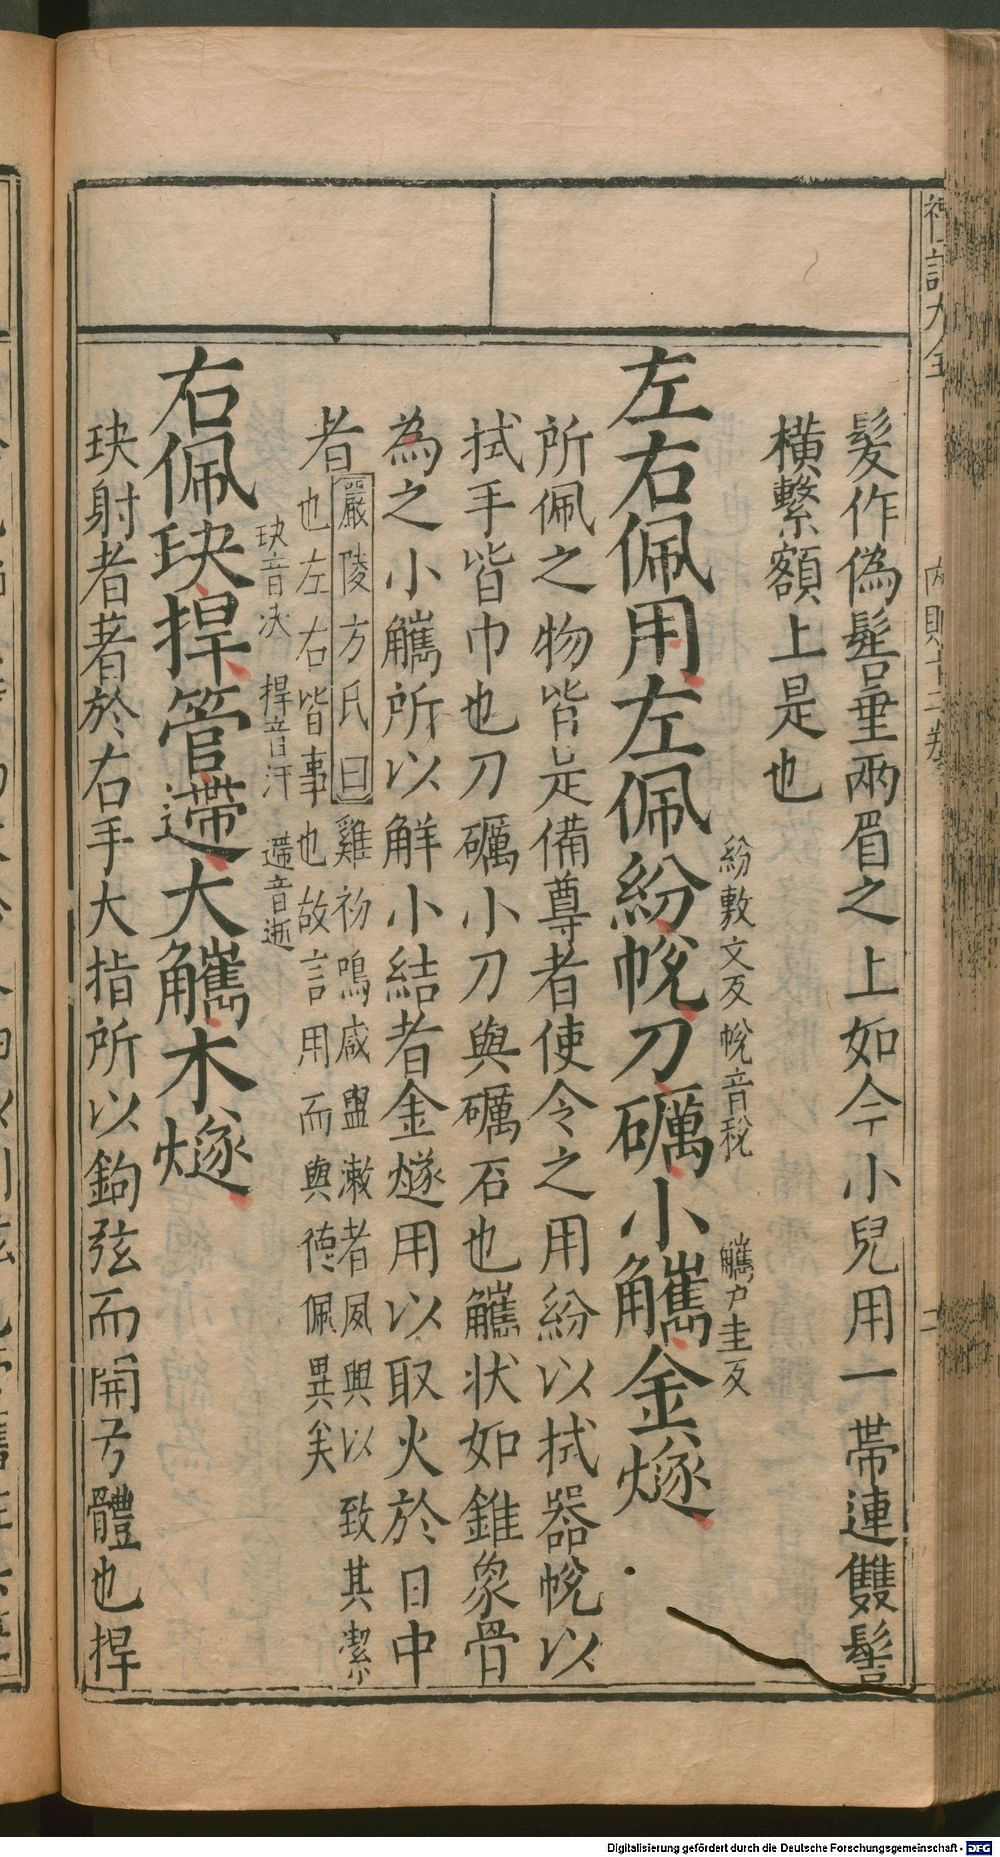 禮記大全 內則十二卷 二
髮作偽髻垂兩眉之上如今小兒用一帶連雙髻
橫繫額上是也
紛敷文反帨音稅 觿户圭反
左右佩用左佩紛帨刀礪小觿金燧
所佩之物皆是備尊者使令之用紛以拭器帨以
拭手皆巾也刀礪小刀與礪石也觿狀如錐象骨
為之小觿所以解小結者金燧用以取火於日中
者嚴陵方氏曰雞初鳴咸盥漱者夙興以致其潔
也左右皆事也故言用而與德佩異矣
玦音决 捍音汗 遰音逝
右佩玦捍管遰大觿木燧
玦射者著於右手大指所以鉤弦而開弓體也捍
Digitalisierung gefördert durch die Deutsche Forschungsgemeinschaft - DFG